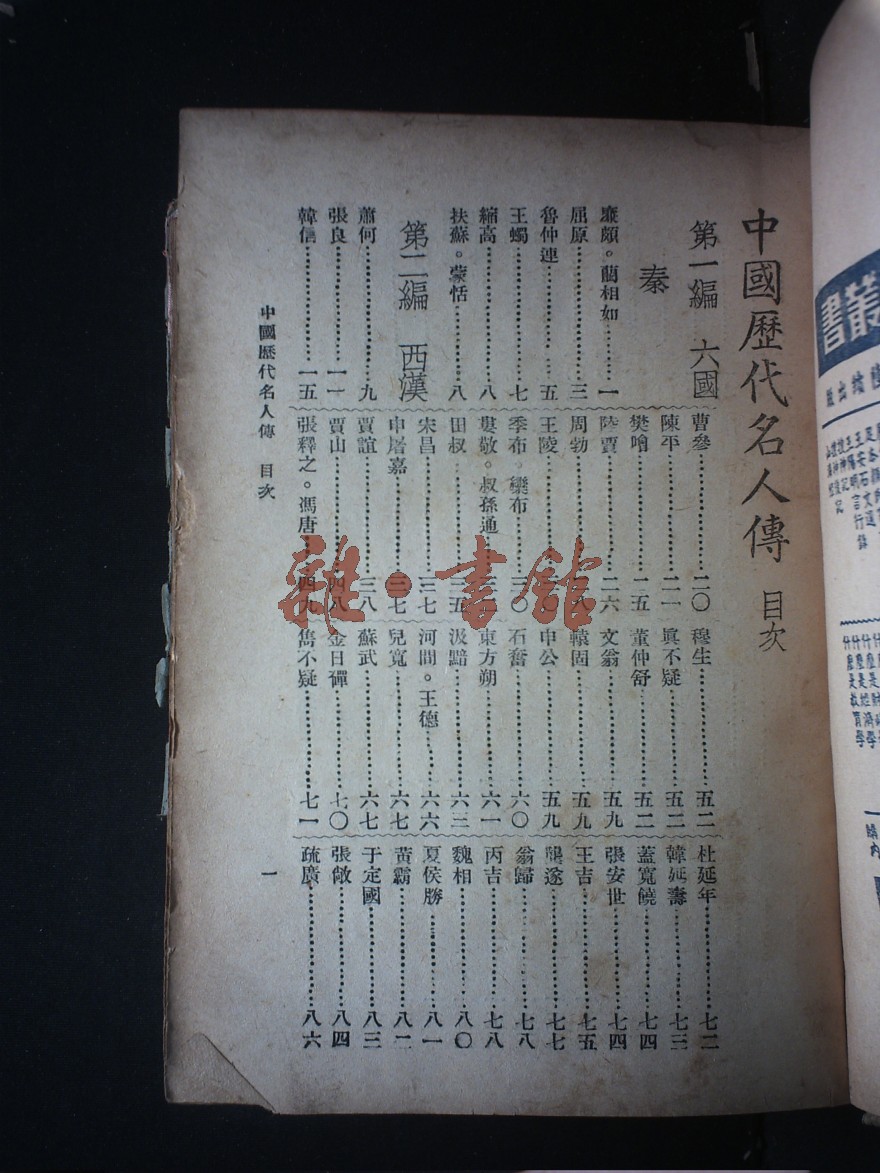 中國歷代名人傳 目次
第一編 六國
秦
廉頗。藺相如…………一
屈原…………三
魯仲連…………五
王蠋…………七
縮高…………八
扶蘇。蒙恬…………八
第二編 西漢
蕭何…………九
張良…………一一
韓信…………一五
曹參…………二〇
陳平…………二一
樊噲…………二五
陸賈…………二六
周勃…………八
王陵…………
季布。欒布…………三〇
婁敬。叔孫通…………
田叔…………三五
宋昌…………三七
申屠嘉…………三七
賈誼…………三八
賈山…………四八
張釋之。馮唐…………四九
穆生…………五二
直不疑…………五二
董仲舒…………五二
文翁…………五九
轅固…………五九
申公…………五九
石奮…………六〇
東方朔…………六一
汲黯…………六三
河間。王德…………六六
兒寬…………六七
蘇武…………六七
金日磾…………七〇
雋不疑…………七一
杜延年…………七二
韓延壽…………七三
蓋寬饒…………七四
張安世…………七四
王吉…………七五
龔遂…………七七
翁歸…………七八
丙吉…………七八
魏相…………八〇
夏侯勝…………八一
黃霸…………八二
于定國…………八三
張敞…………八四
疏廣…………八六
中國歷代名人傳 目次
一
雜·書館
叢書